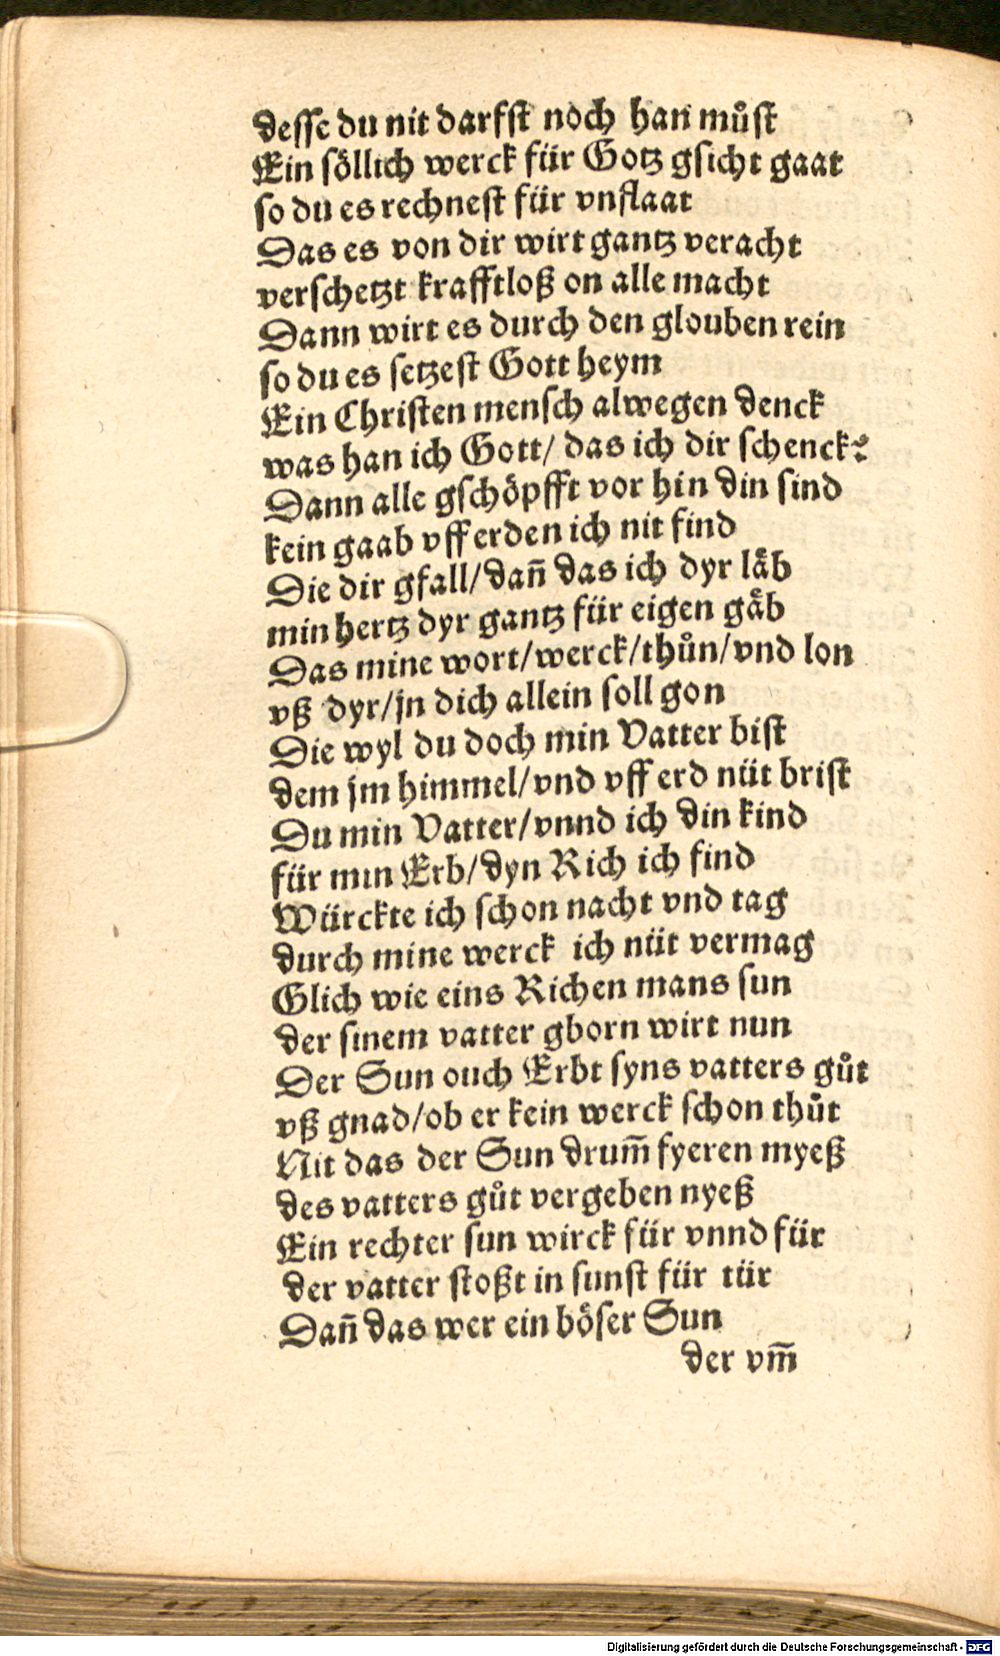 desse du nit darfst noch han muͦst
Ein soͤllich werck für Gotz gsicht gaat
so du es rechnest für vnflaat
Das es von dir wirt gantz veracht
verschetzt krafftloß on alle macht
Dann wirt es durch den glouben rein
so du es setzest Gott heym
Ein Christen mensch alwegen denck
was han ich Gott/ das ich dir schenck?
Dann alle gschoͤpfft vor hin din sind
kein gaab vff erden ich nit find
Die dir gfall/dañ das ich dyr laͤb
min hertz dyr gantz für eigen gaͤb
Das mine wort/werck/thuͦn/vnd lon
vß dyr/jn dich allein soll gon
Die wyl du doch min Vatter bist
dem jm himmel/vnd vff erd nüt brist
Du min Vatter/vnnd ich din kind
für min Erb/dyn Rich ich find
Würckte ich schon nacht vnd tag
durch mine werck ich nüt vermag
Glich wie eins Richen mans sun
der sinem vatter gborn wirt nun
Der Sun ouch Erbt syns vatters guͦt
vß gnad/ob er kein werck schon thuͦt
Nit das der Sun drum̃ fyeren myeß
des vatters guͦt vergeben nyeß
Ein rechter sun wirck für vnnd für
der vatter stoßt in sunst für tür
Dañ das wer ein boͤser Sun
der vm̃
Digitalisierung gefördert durch die Deutsche Forschungsgemeinschaft - DFG